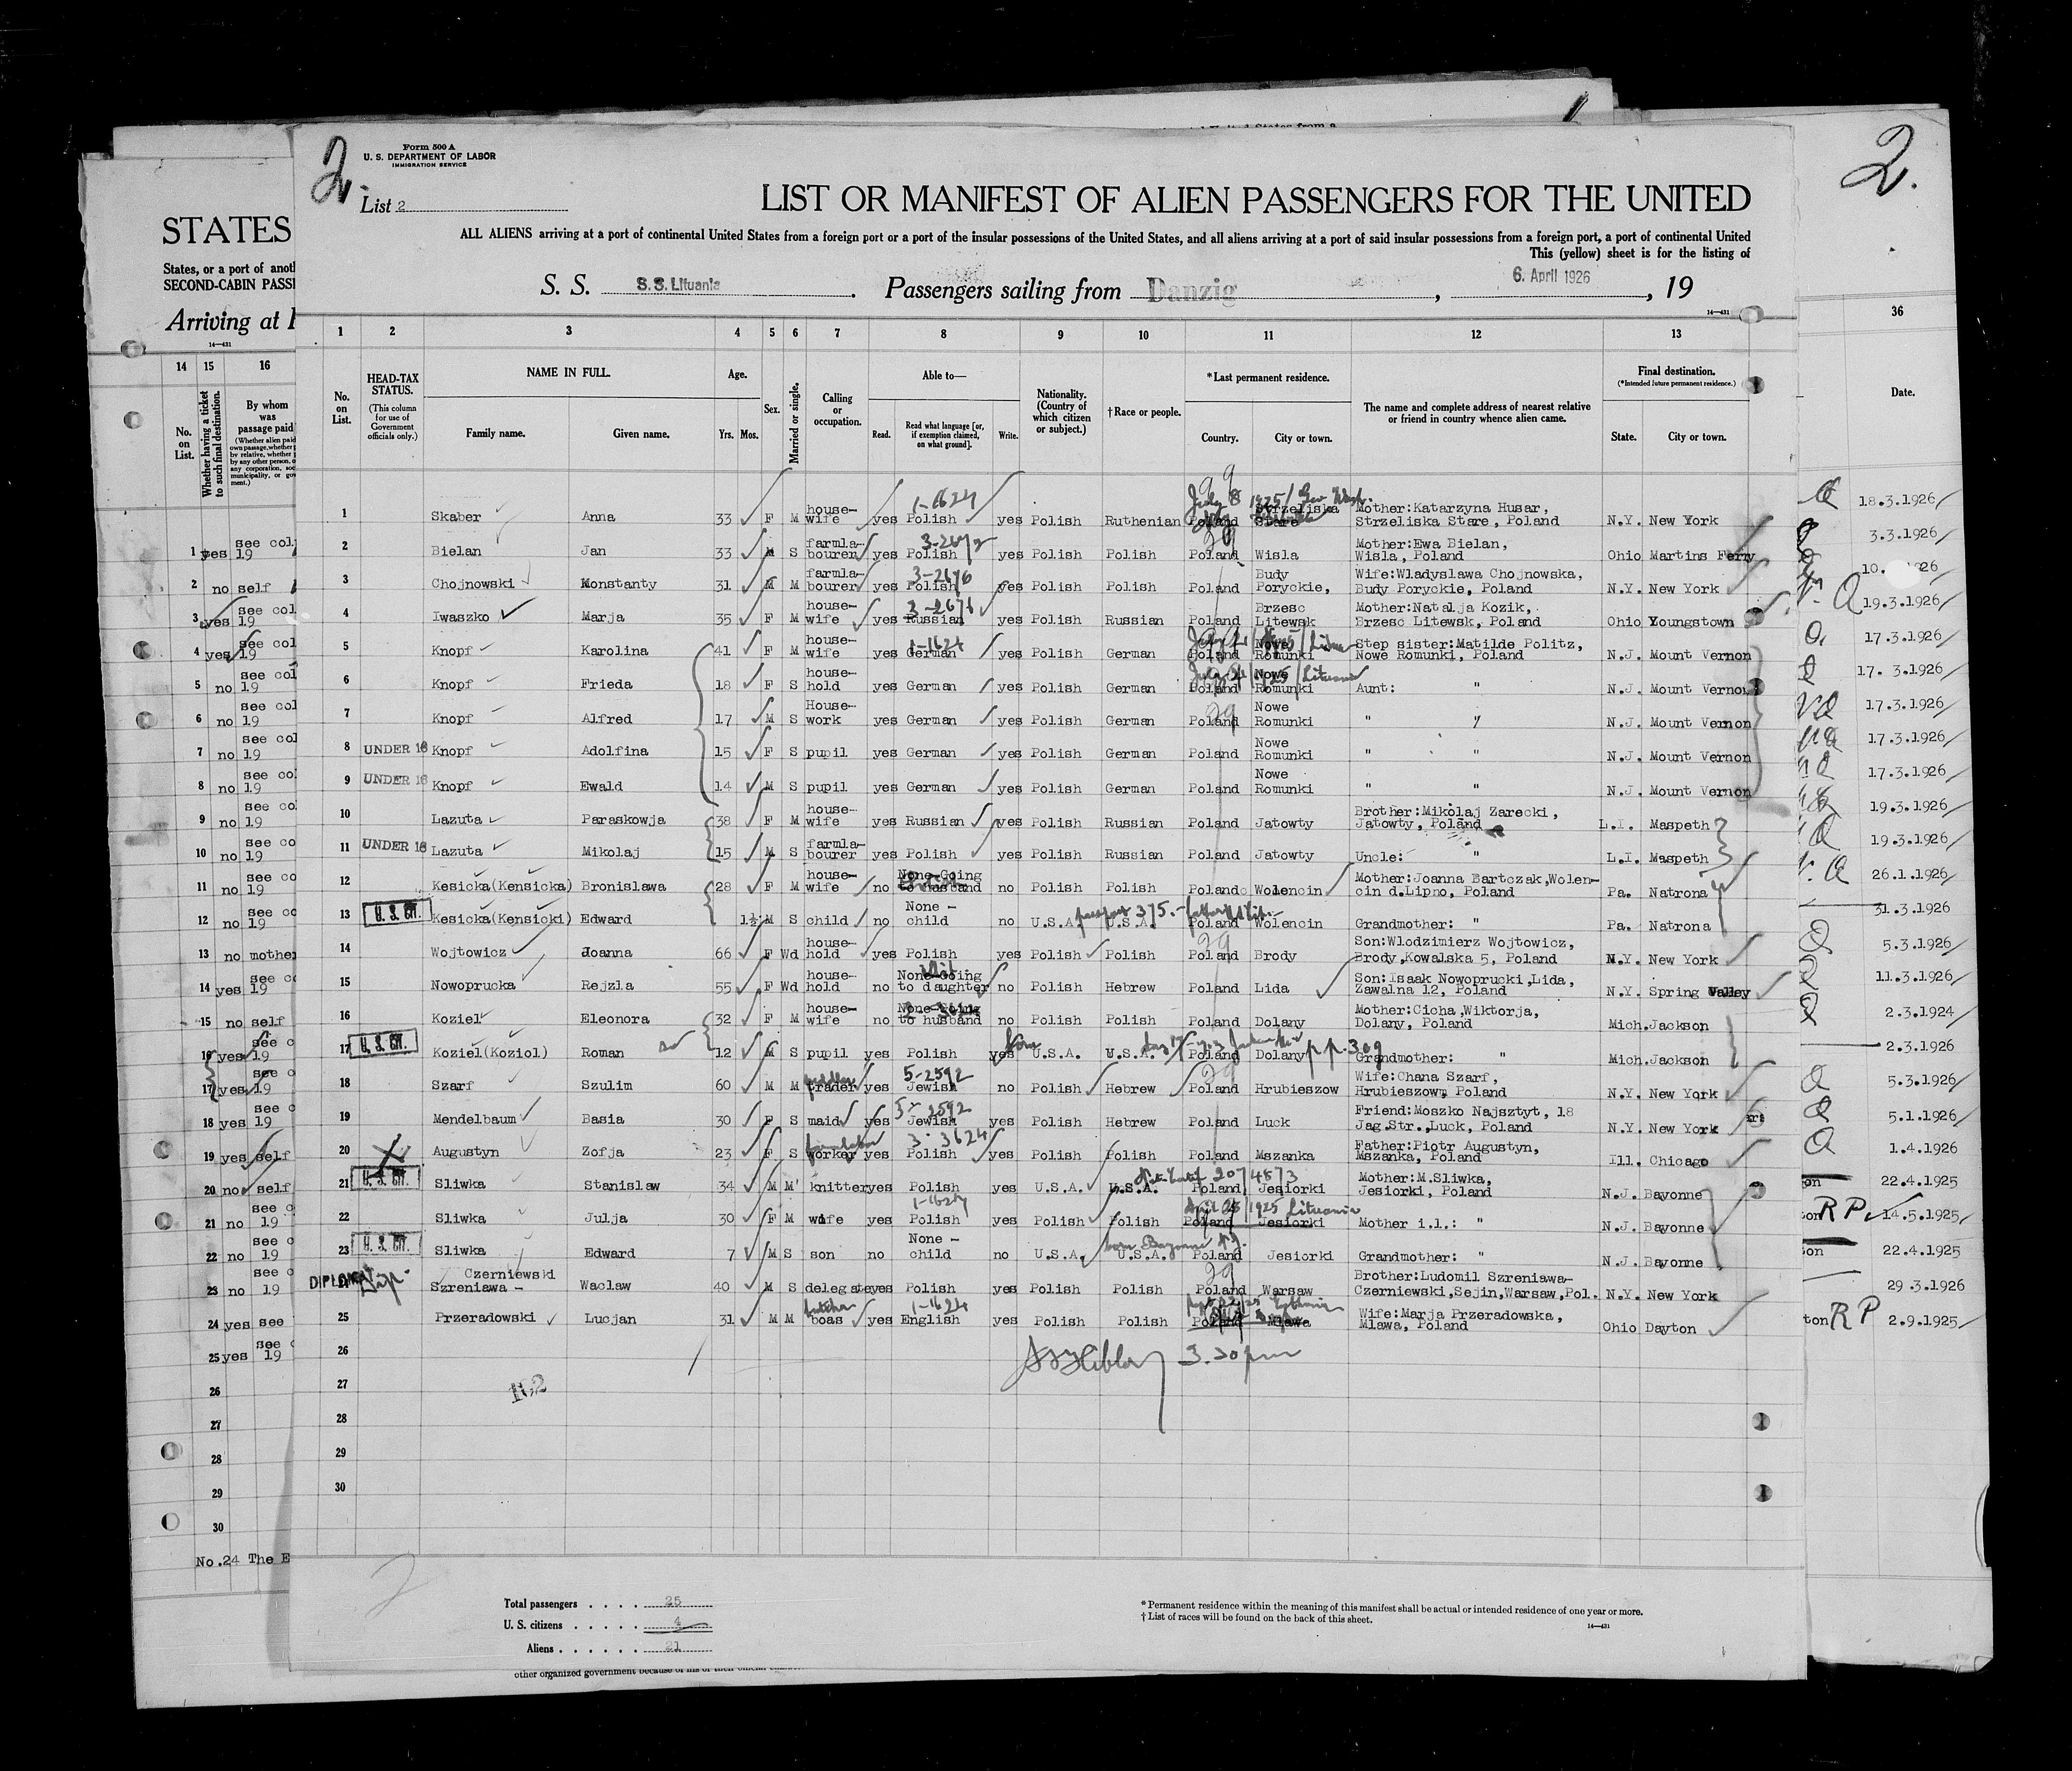 2.
Form 500 A
U. S. DEPARTMENT OF LABOR
IMMIGRATION SERVICE
List 2
LIST OR MANIFEST OF ALIEN PASSENGERS FOR THE UNITED
ALL ALIENS arriving at a port of continental United States from a foreign port or a port of the insular possessions of the United States, and all aliens arriving at a port of said insular possessions from a foreign port, a port of continental United
This (yellow) sheet is for the listing of
S. S. S.S. Lituania. Passengers sailing from Danzig, 6. April 1926, 19
14—431
1 2 3 4 5 6 7 8 9 10 11 12 13
No. on List. HEAD-TAX STATUS. (This column for use of Government officials only.) NAME IN FULL. Family name. Given name. Age. Yrs. Mos. Sex. Married or single. Calling or occupation. Able to— Read. Read what language [or, if exemption claimed, on what ground]. Write. Nationality. (Country of which citizen or subject.) †Race or people. *Last permanent residence. Country. City or town. The name and complete address of nearest relative or friend in country whence alien came. Final destination. (*Intended future permanent residence.) State. City or town.
1 Skaber Anna 33 F M house-wife yes Polish 1-1624 yes Polish Ruthenian Poland Strzeliska Stare Mother:Katarzyna Husar, Strzeliska Stare, Poland N.Y. New York
2 Bielan Jan 33 M S farmla-bourer yes Polish yes Polish Polish Poland Wisla Mother:Ewa Bielan, Wisla, Poland Ohio Martins Ferry
3 Chojnowski Konstanty 31 M M farmla-bourer yes Polish 3-2676 yes Polish Polish Poland Budy Poryckie, Wife:Wladyslawa Chojnowska, Budy Poryckie, Poland N.Y. New York
4 Iwaszko Marja 35 F M house-wife yes Russian 3-2676 yes Polish Russian Poland Brzesc Litewsk Mother:Natalja Kozik, Brzesc Litewsk, Poland Ohio Youngstown
5 Knopf Karolina 41 F M house-wife yes German 1-1624 yes Polish German Poland Nowe Romunki Step sister:Matilde Politz, Nowe Romunki, Poland N.J. Mount Vernon
6 Knopf Frieda 18 F S house-hold yes German yes Polish German Poland Nowe Romunki Aunt: " N.J. Mount Vernon
7 Knopf Alfred 17 M S House-work yes German yes Polish German Poland Nowe Romunki " " N.J. Mount Vernon
8 UNDER 16 Knopf Adolfina 15 F S pupil yes German yes Polish German Poland Nowe Romunki " " N.J. Mount Vernon
9 UNDER 16 Knopf Ewald 14 M S pupil yes German yes Polish German Poland Nowe Romunki " " N.J. Mount Vernon
10 Lazuta Paraskowja 38 F M house-wife yes Russian yes Polish Russian Poland Jatowty Brother:Mikolaj Zarecki, Jatowty, Poland L.I. Maspeth
11 UNDER 16 Lazuta Mikolaj 15 M S farmla-bourer yes Polish yes Polish Russian Poland Jatowty Uncle: " L.I. Maspeth
12 Kesicka(Kensicka) Bronislawa 28 F M house-wife no None-Going to husband no Polish Polish Poland Wolencin Mother:Joanna Bartczak,Wolen-cin d.Lipno, Poland Pa. Natrona
13 U.S. CIT. Kesicka(Kensicki) Edward 1½ M S child no None - child no U.S.A. U.S.A. Poland Wolencin Grandmother: " Pa. Natrona
14 Wojtowicz Joanna 66 F Wd house-hold yes Polish yes Polish Polish Poland Brody Son:Wlodzimierz Wojtowicz, Brody,Kowalska 5, Poland N.Y. New York
15 Nowoprucka Rejzla 55 F Wd house-hold no None-Going to daughter no Polish Hebrew Poland Lida Son:Isaak Nowoprucki,Lida, Zawalna 12, Poland N.Y. Spring Valley
16 Koziel Eleonora 32 F M house-wife no None-Going to husband no Polish Polish Poland Dolany Mother:Cicha,Wiktorja, Dolany, Poland Mich. Jackson
17 U.S. CIT. Koziel(Koziol) Roman 12 M S pupil yes Polish yes U.S.A. U.S.A. Poland Dolany Grandmother: " Mich. Jackson
18 Szarf Szulim 60 M M trader yes Jewish 5-2592 no Polish Hebrew Poland Hrubieszow Wife:Chana Szarf, Hrubieszow, Poland N.Y. New York
19 Mendelbaum Basia 30 F S maid yes Jewish 2592 yes Polish Hebrew Poland Luck Friend:Moszko Najsztyt, 18 Jag.Str.,Luck, Poland N.Y. New York
20 Augustyn Zofja 23 F S worker yes Polish 3-3624 yes Polish Polish Poland Mszanka Father:Piotr Augustyn, Mszanka, Poland Ill. Chicago
21 U.S. CIT. Sliwka Stanislaw 34 M M knitter yes Polish yes U.S.A. U.S.A. Poland Jesiorki Mother:M.Sliwka, Jesiorki, Poland N.J. Bayonne
22 Sliwka Julja 30 F M wife yes Polish 1-1624 yes Polish Polish Poland Jesiorki Mother i.l.: " N.J. Bayonne
23 U.S. CIT. Sliwka Edward 7 M S son no None - child no U.S.A. U.S.A. Poland Jesiorki Grandmother: " N.J. Bayonne
DIPLOMAT Czerniewski Szreniawa - Waclaw 40 M S delegate yes Polish yes Polish Polish Poland Warsaw Brother:Ludomil Szreniawa-Czerniewski,Sejin,Warsaw,Pol. N.Y. New York
25 Przeradowski Lucjan 31 M M boas yes English 1-1624 yes Polish Polish Poland Mlawa Wife:Marja Przeradowska, Mlawa, Poland Ohio Dayton
26 3.30 pm
27
28
29
30
Total passengers . . . . 25
U. S. citizens . . . . . . 4
Aliens . . . . . . 21
* Permanent residence within the meaning of this manifest shall be actual or intended residence of one year or more.
† List of races will be found on the back of this sheet.
14—431
STATES
States, or a port of anot
SECOND-CABIN PASS
Arriving at
14—431
14 15 16
No. on List. Whether having a ticket to such final destination. By whom was passage paid
1 yes see col 19
2 no self
3 yes see col 19
4 yes see col 19
5 no see col 19
6 no see col 19
7 no see col 19
8 no see col 19
9 no see co 19
10 no see co 19
11 no see co 19
12 no see co 19
13 no mother
14 yes see c 19
15 no self
16 yes see c 19
17 yes see c 19
18 yes see c 19
19 yes self
20 no self
21 no see c 19
22 no see c 19
23 no see c 19
24 yes see
25 yes see c 19
26
27
28
29
30
No.24 The E
2.
36
Date.
18.3.1926
3.3.1926
10. 26
19.3.1926
17.3.1926
17. 3.1926
17.3.1926
17.3.1926
17.3.1926
19.3.1926
19.3.1926
26.1.1926
31.3.1926
5.3.1926
11.3.1926
2.3.1924
2.3.1926
5.3.1926
5.1.1926
1.4.1926
22.4.1925
ton RP 14.5.1925
22.4.1925
29.3.1926
ton RP 2.9.1925